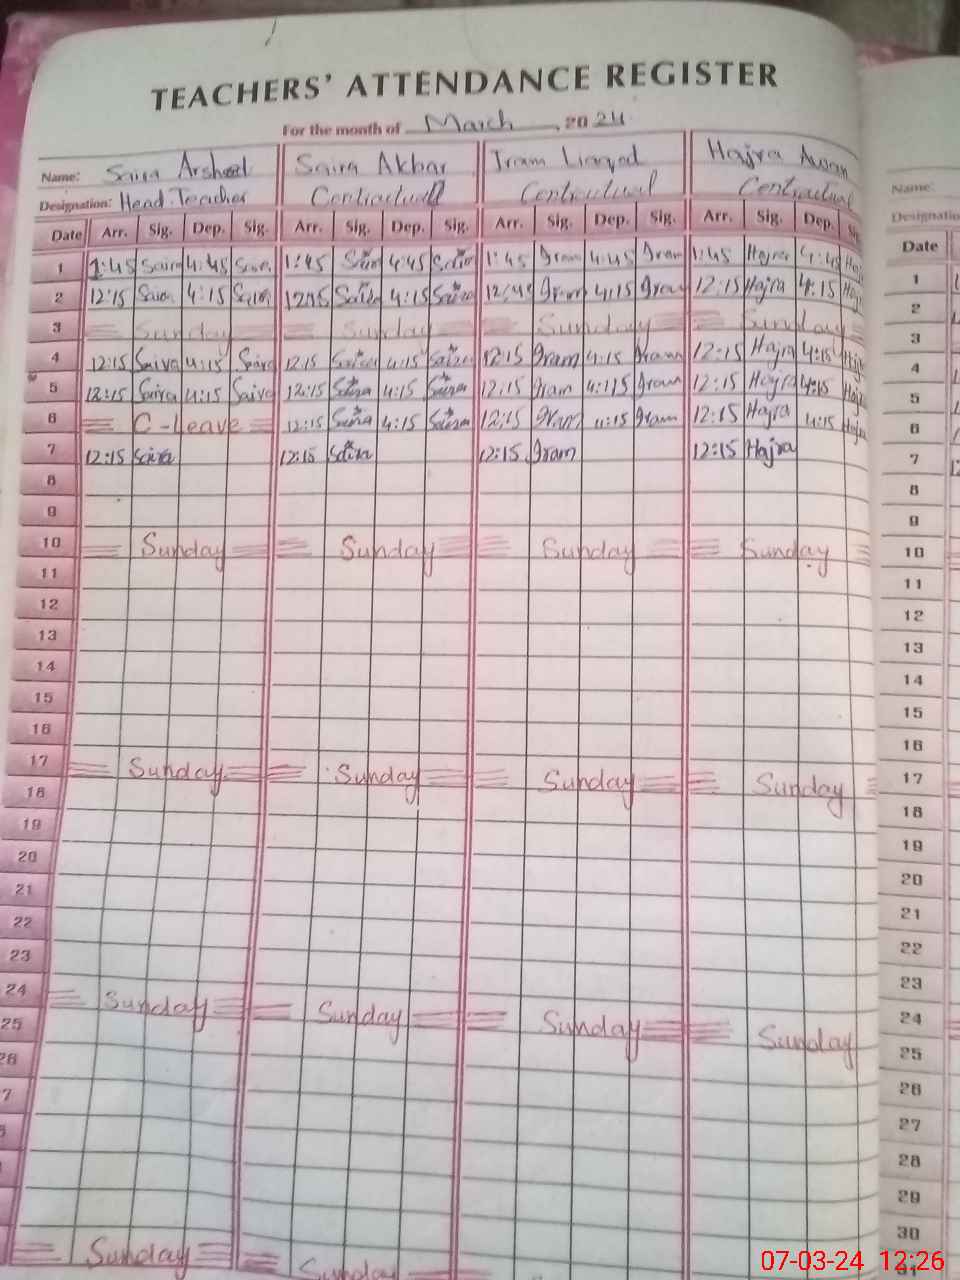 TEACHERS' ATTENDANCE REGISTER
For the month of March, 2024
Name: Saira Arsheel Saira Akbar Iram Liaqod Hajra Awan Name:
Designation: Head Teacher Contractual Contractual Contractual Designatio
Date Arr. Sig. Dep. Sig. Arr. Sig. Dep. Sig. Arr. Sig. Dep. Sig. Arr. Sig. Dep. Sig. Date
1 1:45 Saira 4:45 Saira 1:45 Saira 4:45 Saira 1:45 Iram 4:45 Iram 1:45 Hajra 4:45 Haj 1
2 12:15 Saira 4:15 Saira 12:15 Saira 4:15 Saira Iram 4:15 Iram 12:15 Hajra 4:15 Haj 2
3 Sunday Sunday Sunday Sunday 3
4 12:15 Saira 4:15 Saira 12:15 Saira 4:15 Saira 12:15 Iram 4:15 Iram 12:15 Hajra 4:15 Haj 4
5 12:15 Saira 4:15 Saira 12:15 Saira 4:15 Saira 12:15 Iram 4:15 Iram 12:15 Hajra 4:15 Haj 5
6 C-Leave 12:15 Saira 4:15 Saira 12:15 Iram 4:15 Iram 12:15 Hajra 4:15 Hajra 6
7 12:15 Saira 12:15 Saira 12:15 Iram 12:15 Hajra 7
8 8
9 9
10 Sunday Sunday Sunday Sunday 10
11 11
12 12
13 13
14 14
15 15
16 16
17 Sunday Sunday Sunday Sunday 17
18 18
19 19
20 20
21 21
22 22
23 23
24 Sunday Sunday Sunday Sunday 24
25 25
26 26
7 27
28
29
30
Sunday Sunday 31
07-03-24 12:26